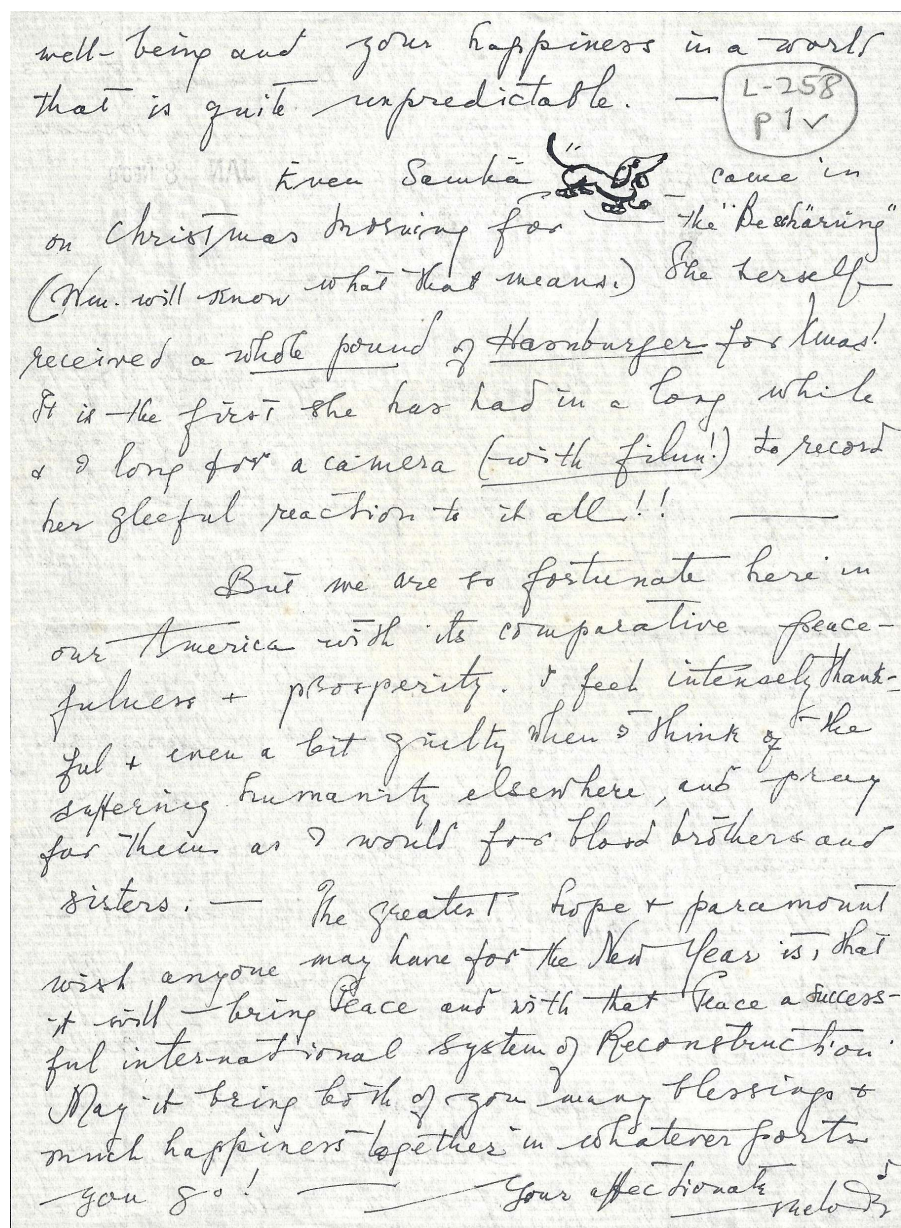 well-being and your happiness in a world
that is quite unpredictable. —
L-258
p 1 v
Even Samba — came in
on Christmas morning for — the "Beschärung"
(Wm. will know what that means.) She herself
received a whole pound of Hamburger for Xmas!
It is the first she has had in a long while
& I long for a camera (with film!) to record
her gleeful reaction to it all!! —
But we are so fortunate here in
our America with its comparative peace-
fulness + prosperity. I feel intensely thank-
ful + even a bit guilty when I think of the
suffering humanity elsewhere, and pray
for them as I would for blood brothers and
sisters. — The greatest hope + paramount
wish anyone may have for the New Year is, that
it will — bring Peace and with that Peace a success-
ful international system of Reconstruction.
May it bring both of you many blessings &
much happiness together in whatever ports
you go! — Your affectionate